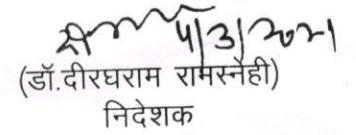 4/3/2021
(डॉ.दीरघराम रामस्नेही)
निदेशक